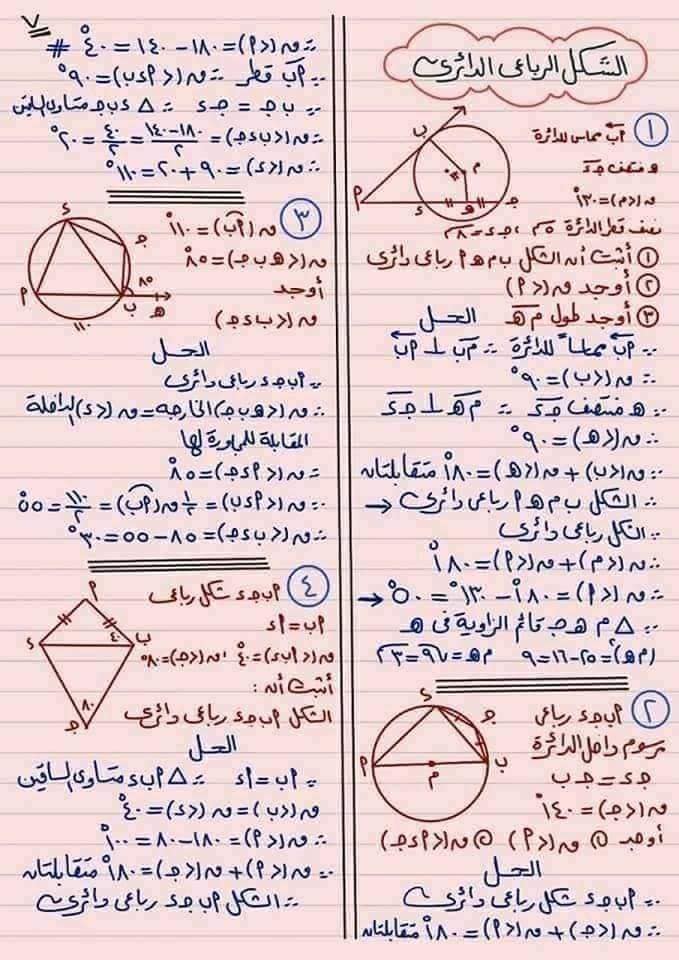 الشكل الرباعى الدائرى
١
أب مماس للدائرة
ه منتصف جـ د
ق(م) = ١٣٠°
نصف قطر الدائرة ٥سم ، جـ د = ٨سم
١ أثبت أن الشكل ب م ه أ رباعى دائرى
٢ أوجد ق(<أ)
٣ أوجد طول م ه
الحل
∵ أب مماساً للدائرة ∴ م ب ⊥ أب
∴ ق(<ب) = ٩٠°
∵ ه منتصف جـ د ∴ م ه ⊥ جـ د
∴ ق(<ه) = ٩٠°
∵ ق(<ب) + ق(<ه) = ١٨٠° متقابلتان
∴ الشكل ب م ه أ رباعى دائرى ←
∵ الشكل رباعى دائرى
∴ ق(<م) + ق(<أ) = ١٨٠°
∴ ق(<أ) = ١٨٠° - ١٣٠° = ٥٠° ←
∵ △ م ه جـ قائم الزاوية فى ه
(م ه)² = ٢٥ - ١٦ = ٩ م ه = √٩ = ٣سم
٢
أ ب جـ د رباعى
مرسوم داخل الدائرة
جـ د = جـ ب
ق(<جـ) = ١٤٠°
أوجد ① ق(<أ) ② ق(<أ د جـ)
الحل
∵ أ ب جـ د شكل رباعى دائرى
∴ ق(<جـ) + ق(<أ) = ١٨٠° متقابلتان
٧
∴ ق(<أ) = ١٨٠ - ١٤٠ = ٤٠° #
∵ أب قطر ∴ ق(<أ د ب) = ٩٠°
∵ ب جـ = جـ د ∴ △ د ب جـ متساوى الساقين
∴ ق(<ب د جـ) = ١٨٠-١٤٠/٢ = ٤٠/٢ = ٢٠°
∴ ق(<د) = ٩٠ + ٢٠ = ١١٠°
٣
ق(أب) = ١١٠°
ق(<ه ب جـ) = ٨٥°
أوجد
ق(<ب د جـ)
الحل
∵ أ ب جـ د رباعى دائرى
∴ ق(<ه ب جـ) الخارجه = ق(<د) الداخلة
المقابلة للمجاورة لها
∴ ق(<أ د جـ) = ٨٥°
∵ ق(<أ د ب) = ١/٢ ق(أب) = ١١٠/٢ = ٥٥°
∴ ق(<ب د جـ) = ٨٥ - ٥٥ = ٣٠°
٤
أ ب جـ د شكل رباعى
أب = أد
ق(<أ ب د) = ٤٠° ، ق(<جـ) = ٨٠°
أثبت أن :
الشكل أ ب جـ د رباعى دائرى
الحل
∵ أب = أد ∴ △ أ ب د متساوى الساقين
ق(<ب) = ق(<د) = ٤٠°
∴ ق(<أ) = ١٨٠ - ٨٠ = ١٠٠°
∵ ق(<أ) + ق(<جـ) = ١٨٠° متقابلتان
∴ الشكل أ ب جـ د رباعى دائرى